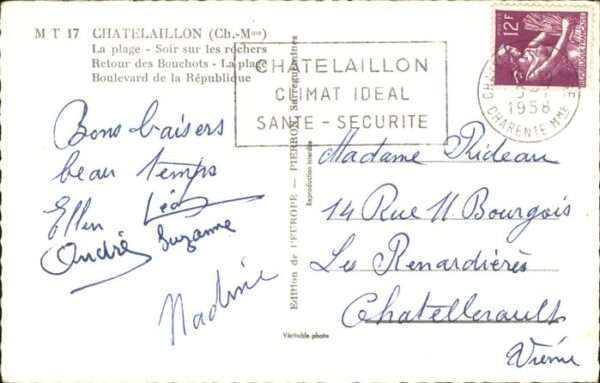 M T 17 CHATELAILLON (Ch.-Mme)
La plage - Soir sur les rochers
Retour des Bouchots - La plage
Boulevard de la République
CHATELAILLON
CLIMAT IDEAL
SANTE - SECURITE
12F
1958
CHARENTE MME
Bons baisers
beau temps
Ellen Léo
André Suzanne
Nadine
Edition de l'EUROPE - PIERRON, Sarreguemines
Reproduction interdite
Véritable photo
Madame Rideau
14 Rue N. Bourgois
Les Renardières
Chatellerault
Vienne